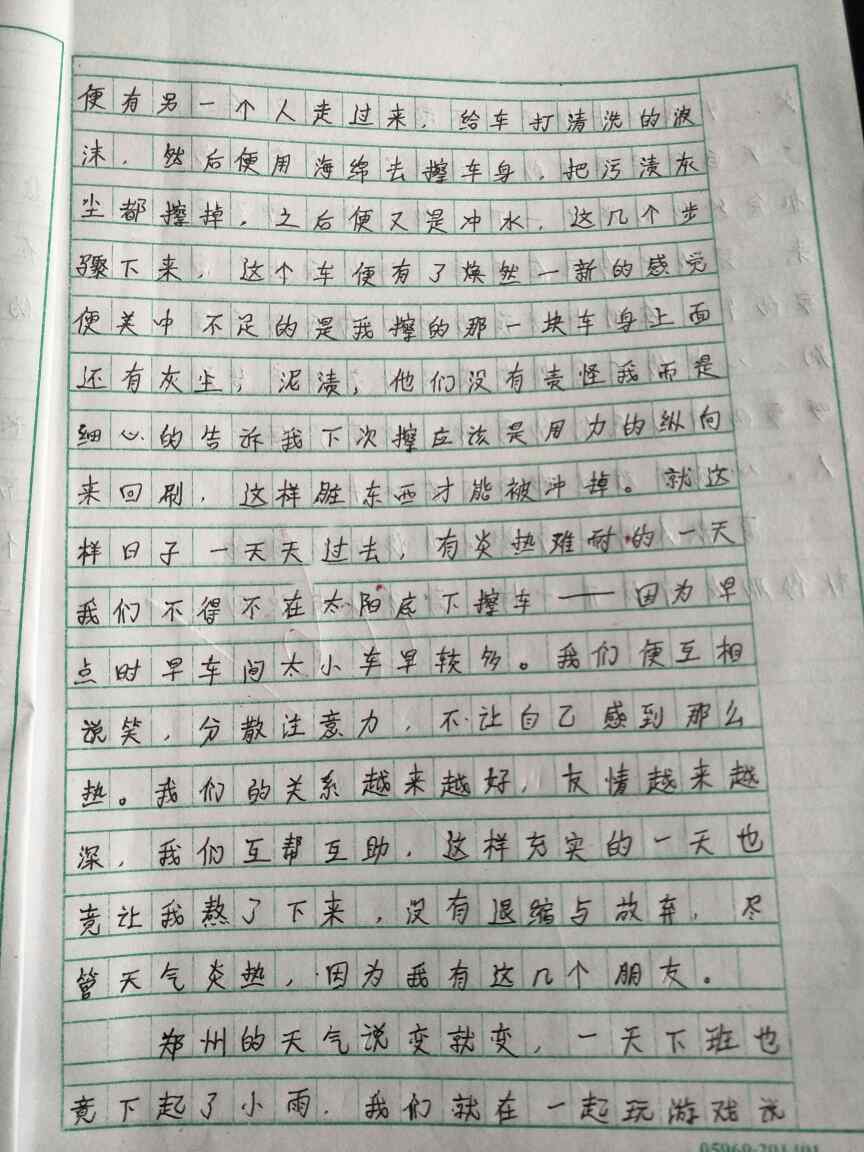 便有另一个人走过来，给车打清洗的泡
沫，然后便用海绵去擦车身，把污渍灰
尘都擦掉，之后便又是冲水，这几个步
骤下来，这个车便有了焕然一新的感觉
便美中不足的是我擦的那一块车身上面
还有灰尘，泥渍，他们没有责怪我而是
细心的告诉我下次擦应该是用力的纵向
来回刷，这样脏东西才能被冲掉。就这
样日子一天天过去，有炎热难耐的一天
我们不得不在太阳底下擦车——因为早
点时早车间太小车早较多。我们便互相
说笑，分散注意力，不让自己感到那么
热。我们的关系越来越好，友情越来越
深，我们互帮互助，这样充实的一天也
竟让我熬了下来，没有退缩与放弃，尽
管天气炎热，因为我有这几个朋友。
郑州的天气说变就变，一天下班也
竟下起了小雨，我们就在一起玩游戏说